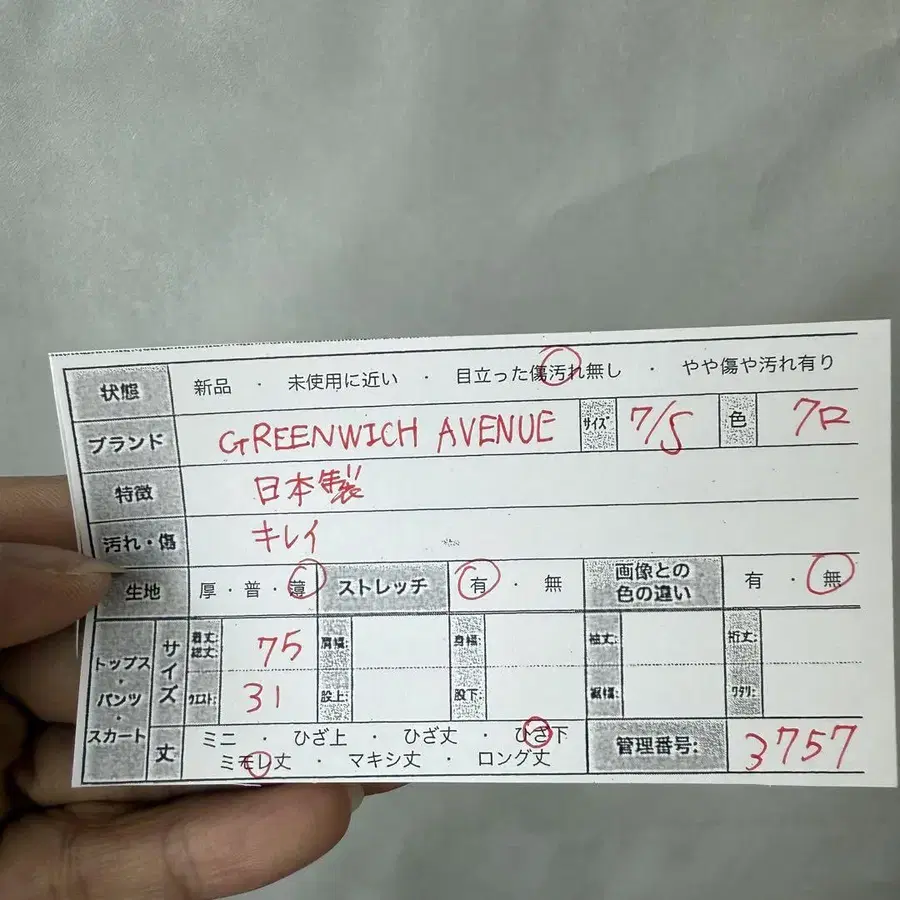 状態 新品 ・ 未使用に近い ・ 目立った傷汚れ無し ・ やや傷や汚れ有り
ブランド GREENWICH AVENUE ｻｲｽﾞ 7/S 色 7ロ
特徴 日本製
汚れ・傷 キレイ
生地 厚・普・薄 ストレッチ 有 ・ 無 画像との色の違い 有 ・ 無
トップス・パンツ・スカート サイズ 着丈総丈: 75 肩幅: 身幅: 袖丈: 裄丈:
ｳｴｽﾄ: 31 股上: 股下: 裾幅: ﾜﾀﾘ:
丈 ミニ ・ ひざ上 ・ ひざ丈 ・ ひざ下
ミモレ丈 ・ マキシ丈 ・ ロング丈 管理番号: 3757